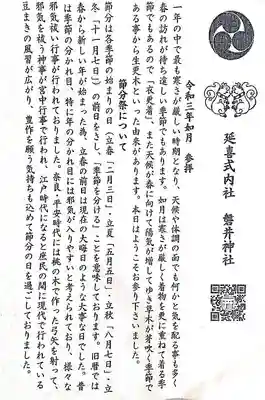 延喜式内社　磐井神社
令和三年如月　参拝
一年の中で最も寒さが厳しい時期となり、天候や体調の面でも何かと気を配る事も多く
春の訪れが待ち遠しい季節でもあります。如月は寒さが厳しく着物を更に重ねて着る季
節でもあるので「衣更着」、また天候が春に向けて陽気が増してゆき草木が芽吹く季節で
ある事から生更木といった由来があります。本日はようこそお参り下さいました。
節分祭について
節分は各季節の始まりの日（立春「二月三日」・立夏「五月五日」・立秋「八月七日」・立
冬「十一月七日」）の前日をさし、「季節を分ける」ことを意味しております。旧暦では
春から新しい年が始まった為、立春の前日は現在の大晦日のような大事な日でした。昔
は季節の分かれ目、特に年の分かれ目には邪気が入りやすいと考えられており、様々な
邪気祓い行事が行われておりました。奈良・平安時代には桃の木で作った弓矢を射って、
邪気を祓う神事が宮中行事で行われ、江戸時代になると庶民の間に現代で行われている
豆まきの風習が広がり、豊作を願う気持ちも込めて節分の日を過ごしておりました。